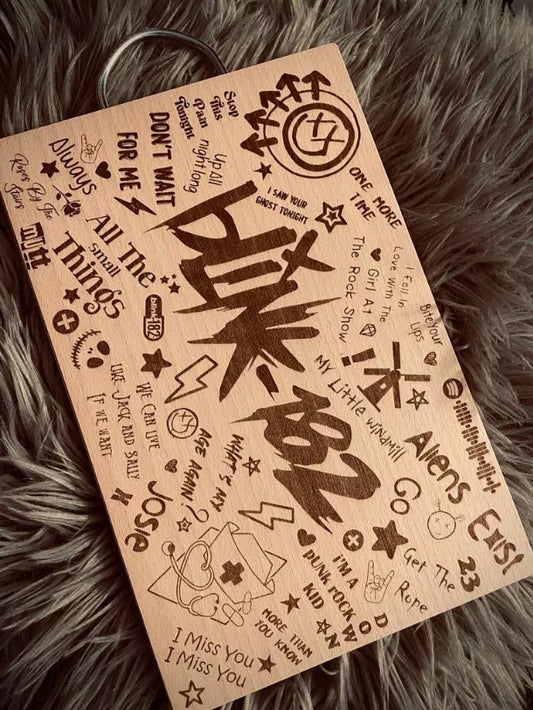 Stop
This
Pain
Tonight
Up All
night long
DON'T WAIT
FOR ME
Always
Roses By The
Stairs
MUTT
All The
small
Things
blink-182
blink-
182
I SAW YOUR
GHOST TONIGHT
ONE MORE
TIME
I Fell In
Love With The
Girl At
The Rock Show
Bite Your
Lips
MY Little Windmill
WE CAN LIVE
LIKE JACK AND SALLY
IF WE WANT
WHAT'S MY
AGE AGAIN?
Josie
Aliens
Exist
GO
Get The
Rope
23
I'M A
PUNK ROCK
KID
DOWN
MORE THAN
YOU KNOW
I Miss You
I Miss You